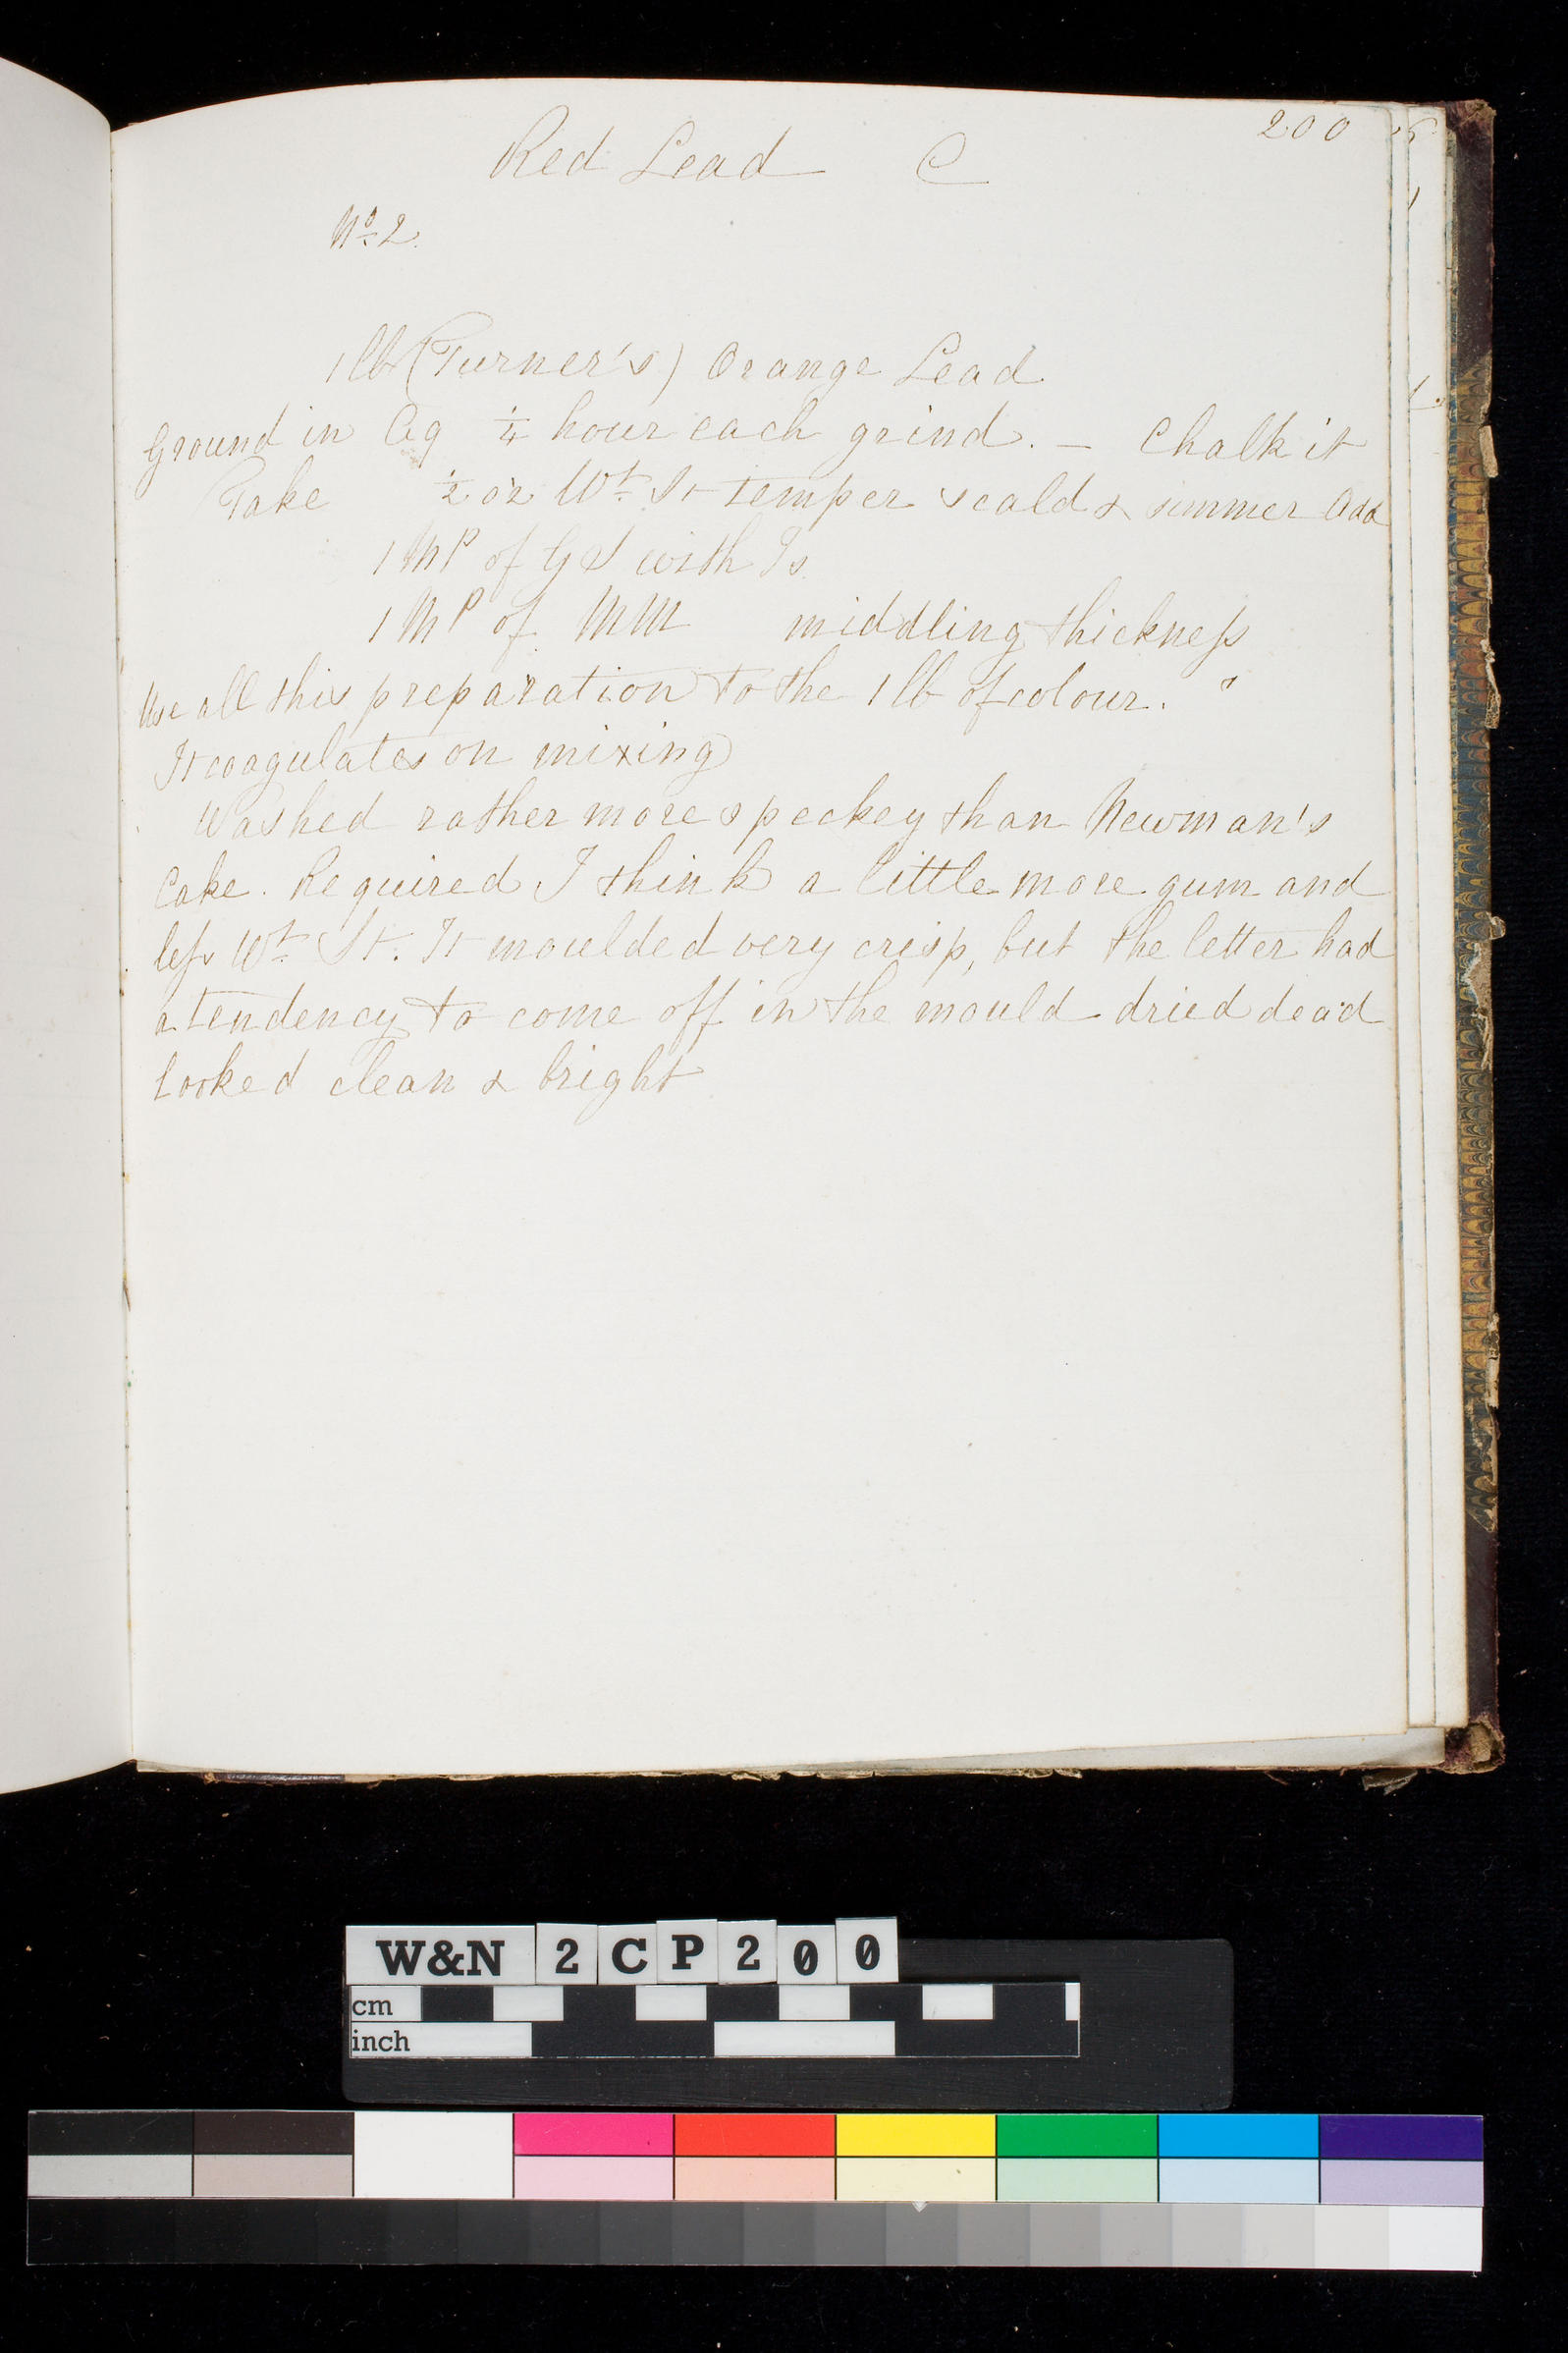 200
Red Lead C
No. 2.
1 lb (Turner's) Orange Lead
Ground in Aq 1/4 hour each grind. — Chalk it
Take 1/2 oz Wt. St temper scald & simmer Add
1 MP of GS with Is
1 MP of MM middling thickness
Use all this preparation to the 1 lb of colour.
It coagulates on mixing
Washed rather more speckey than Newman's
Cake. Required I think a little more gum and
less Wt. St. It moulded very crisp, but the letter had
a tendency to come off in the mould dried dead
looked clean & bright
W&N 2CP200
cm
inch